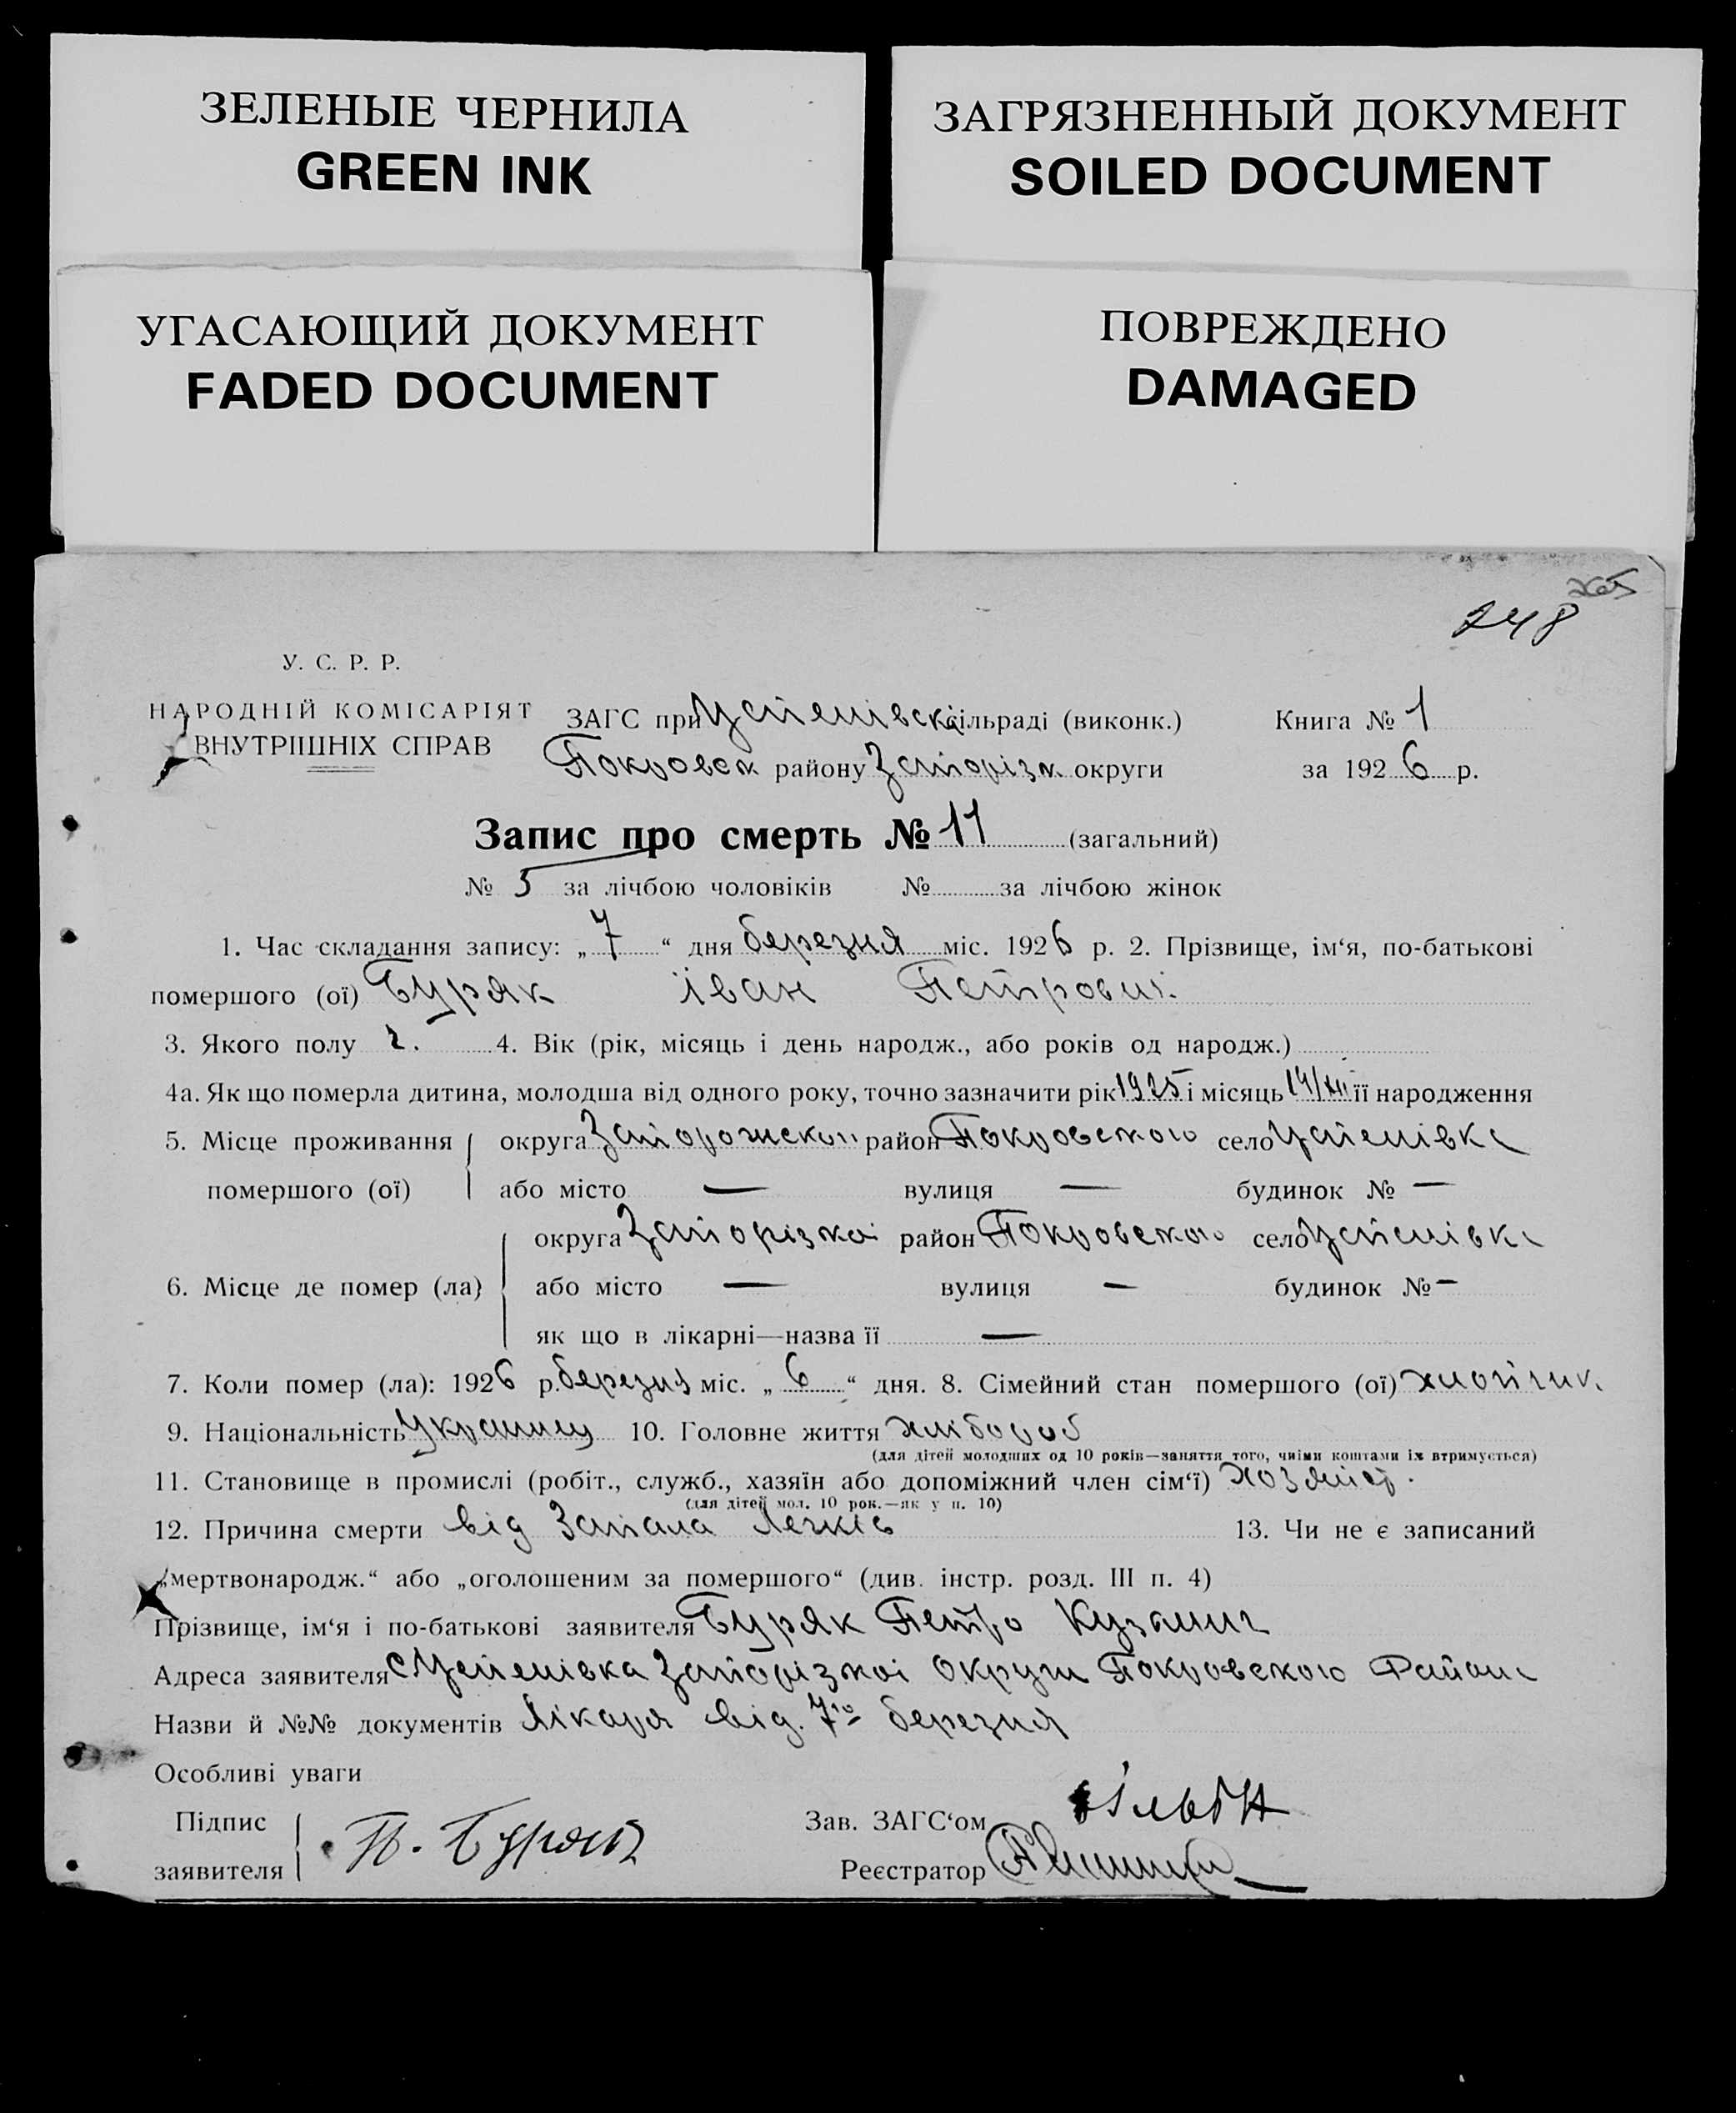 ЗЕЛЕНЫЕ ЧЕРНИЛА
GREEN INK
ЗАГРЯЗНЕННЫЙ ДОКУМЕНТ
SOILED DOCUMENT
УГАСАЮЩИЙ ДОКУМЕНТ
FADED DOCUMENT
ПОВРЕЖДЕНО
DAMAGED
265
248
У. С. Р. Р.
НАРОДНІЙ КОМІСАРІЯТ
ВНУТРІШНІХ СПРАВ
ЗАГС при Успенівскі сільраді (виконк.) Книга № 1
Покровск району Запорізк округи за 1926 р.
Запис про смерть № 11 (загальний)
№ 5 за лічбою чоловіків № за лічбою жінок
1. Час складання запису: „ 7 “ дня березня міс. 1926 р. 2. Прізвище, ім‘я, по-батькові
помершого (ої) Буряк Іван Петрович
3. Якого полу ч. 4. Вік (рік, місяць і день народж., або років од народж.)
4а. Як що померла дитина, молодша від одного року, точно зазначити рік 1925 і місяць 14/XII її народження
5. Місце проживання помершого (ої) округа район Покровского село Успенівка
або місто — вулиця — будинок № —
6. Місце де помер (ла) округа Запорізкоі район Покровского село Успенівка
або місто — вулиця — будинок № —
як що в лікарні—назва її —
7. Коли помер (ла): 1926 р. березня міс. „ 6 “ дня. 8. Сімейний стан помершого (ої) хлопчик
9. Національність Украинец 10. Головне життя хлібороб
(для дітей молодших од 10 років—заняття того, чиїми коштами їх втримується)
11. Становище в промислі (робіт., служб., хазяїн або допоміжний член сім‘ї)
(для дітей мол. 10 рок.—як у п. 10)
12. Причина смерти від Запала Легків 13. Чи не є записаний
„мертвонародж.“ або „оголошеним за помершого“ (див. інстр. розд. III п. 4)
Прізвище, ім‘я і по-батькові заявителя Буряк Петро Кузмич
Адреса заявителя с Успенівка Запорізкоі Округи Покровского Району
Назви й №№ документів Лікаря від. 7го березня
Особливі уваги
Підпис заявителя П. Буряк
Зав. ЗАГС‘ом
Реєстратор